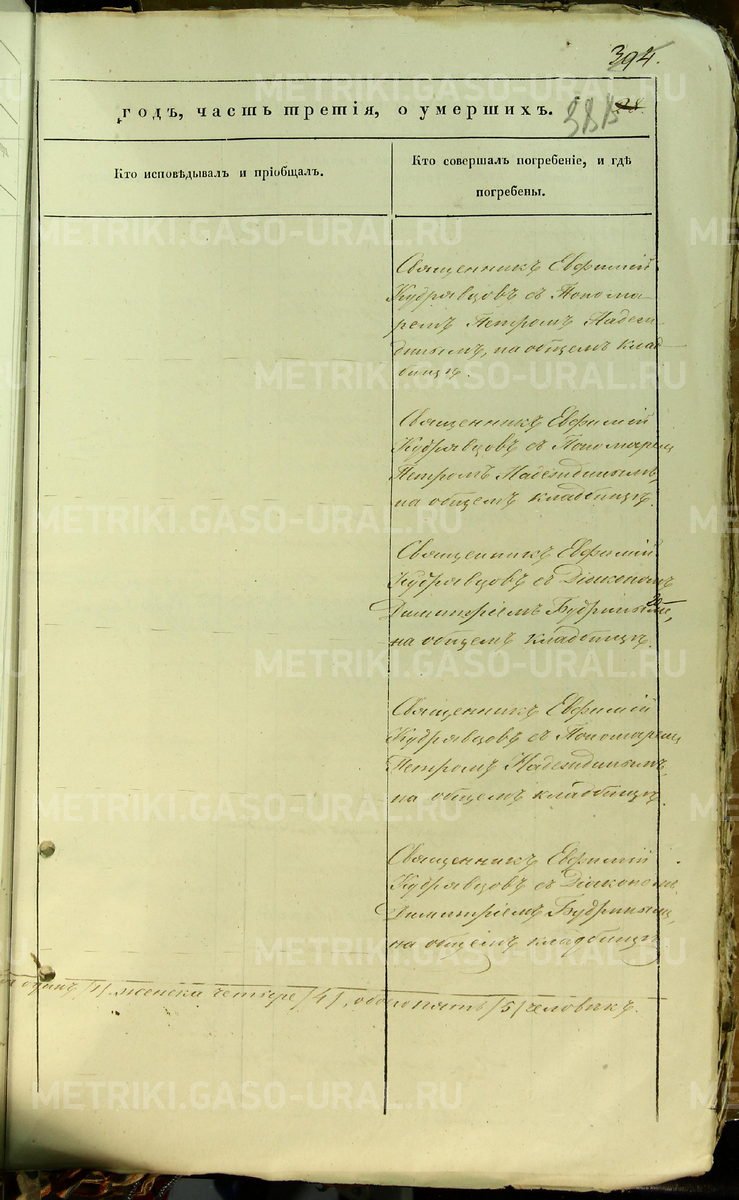 394.
годъ, часть третія, о умершихъ.
385
28
Кто исповѣдывалъ и пріобщалъ.
Кто совершалъ погребеніе, и гдѣ
погребены.
Священникъ Евфимій
Кудрявцовъ съ Понома-
ремъ Петромъ Надеж-
динымъ, на общемъ клад-
бищѣ.
Священникъ Евфимій
Кудрявцовъ съ Пономаремъ
Петромъ Надеждинымъ,
на общемъ кладбищѣ.
Священникъ Евфимій
Кудрявцовъ съ Діакономъ
Димитріемъ Будринымъ,
на общемъ кладбищѣ.
Священникъ Евфимій
Кудрявцовъ съ Пономаремъ
Петромъ Надеждинымъ,
на общемъ кладбищѣ.
Священникъ Евфимій
Кудрявцовъ съ Діакономъ
Димитріемъ Будринымъ,
на общемъ кладбищѣ
одинъ /1/. женска четыре /4/, обоего пять /5/ человѣкъ.
METRIKI.GASO-URAL.RU